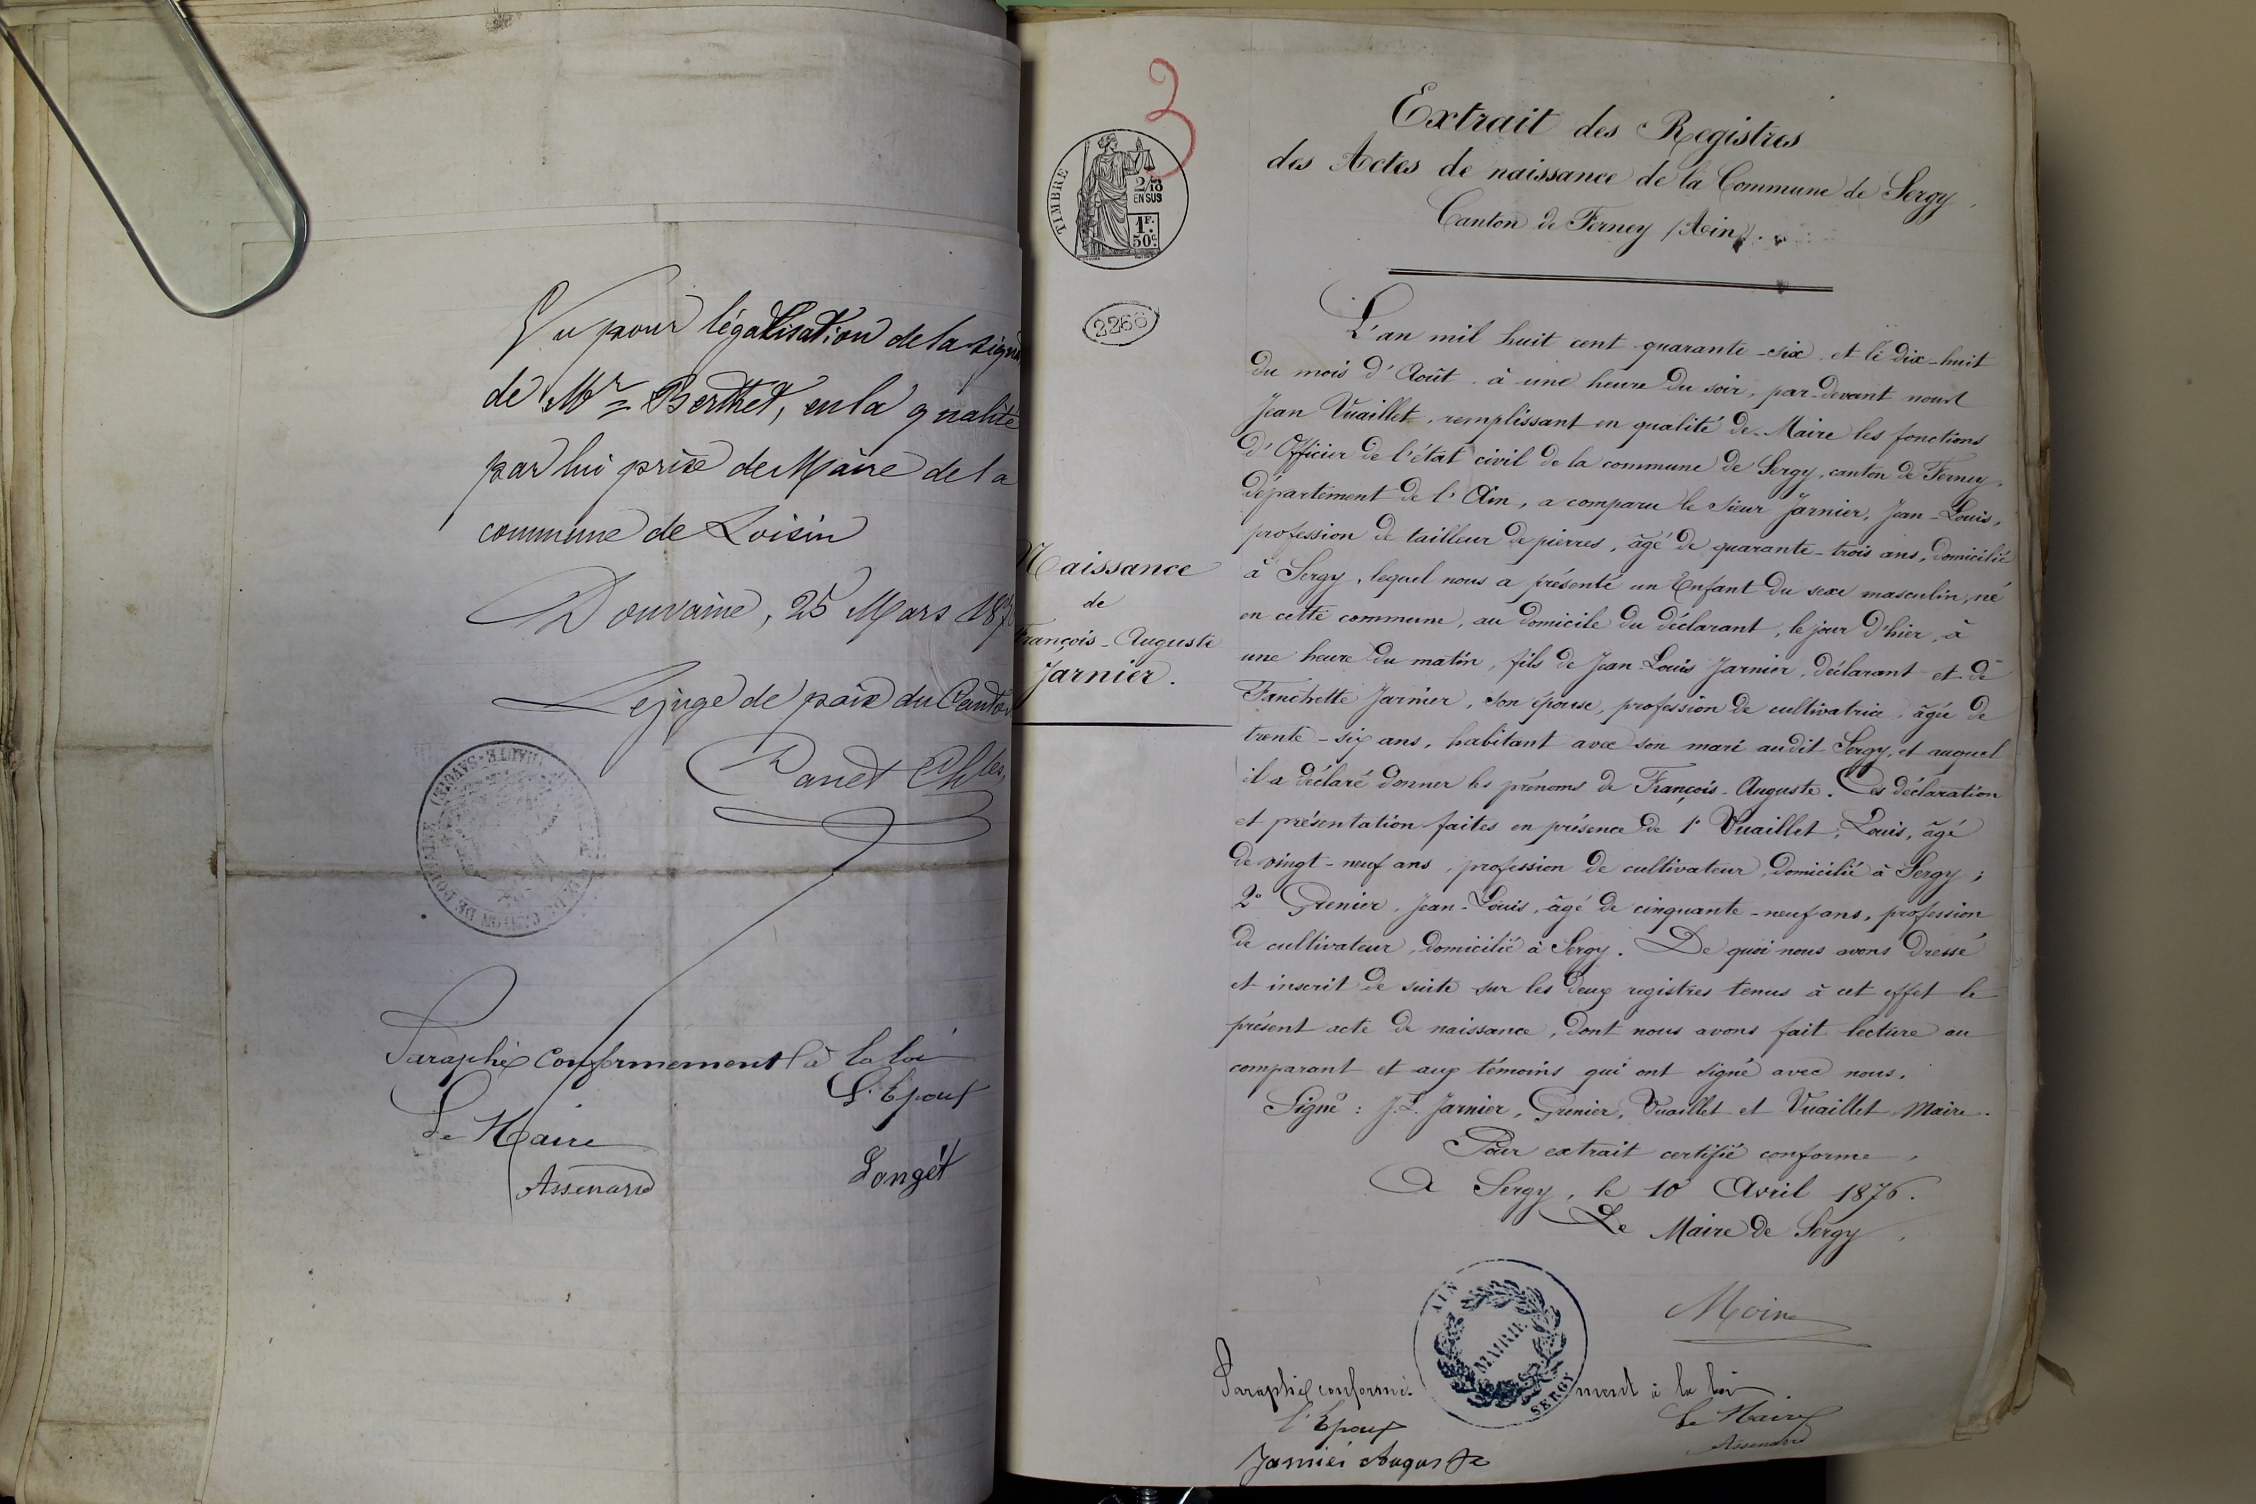 Vu pour légalisation de la sign
de Mr Berthet, en la qualité
par lui prise de Maire de la
commune de Loisin
Douvaine, 25 Mars 187
Le juge de paix du Canton
Paraphé conformement à la loi
L'Epoux
Le Maire
Assenard
Longet
3
TIMBRE
2/10
EN SUS
1F.
50c
2266
Naissance
de
François-Auguste
Jarnier.
Extrait des Registres
des Actes de naissance de la Commune de Sergy
Canton de Ferney (Ain).
L'an mil huit cent quarante-six et le dix-huit
du mois d'Août à une heure du soir, par-devant nous
Jean Vuaillet, remplissant en qualité de Maire les fonctions
d'Officier de l'état civil de la commune de Sergy, canton de Ferney,
département de l'Ain, a comparu le sieur Jarnier, Jean-Louis,
profession de tailleur de pierres, âgé de quarante-trois ans, domicilié
à Sergy, lequel nous a présenté un Enfant du sexe masculin, né
en cette commune, au domicile du déclarant, le jour d'hier, à
une heure du matin, fils de Jean-Louis Jarnier, déclarant et de
Fanchette Jarnier, son épouse, profession de cultivatrice, âgée de
trente-six ans, habitant avec son mari audit Sergy, et auquel
il a déclaré donner les prénoms de François-Auguste. Ces déclaration
et présentation faites en présence de 1° Vuaillet, Louis, âgé
de vingt-neuf ans, profession de cultivateur, domicilié à Sergy;
2° Grenier, Jean-Louis, âgé de cinquante-neuf ans, profession
de cultivateur, domicilié à Sergy. De quoi nous avons dressé
et inscrit de suite sur les deux registres tenus à cet effet le
présent acte de naissance, dont nous avons fait lecture au
comparant et aux témoins qui ont signé avec nous.
Signé: J.L. Jarnier, Grenier, Vuaillet et Vuaillet Maire.
Pour extrait certifié conforme,
A Sergy, le 10 Avril 1876.
Le Maire de Sergy,
Moine
AIN
MAIRIE
SERGY
Paraphé conformément à la loi
l'Epoux
Le Maire
Jarnier Auguste
Assenard